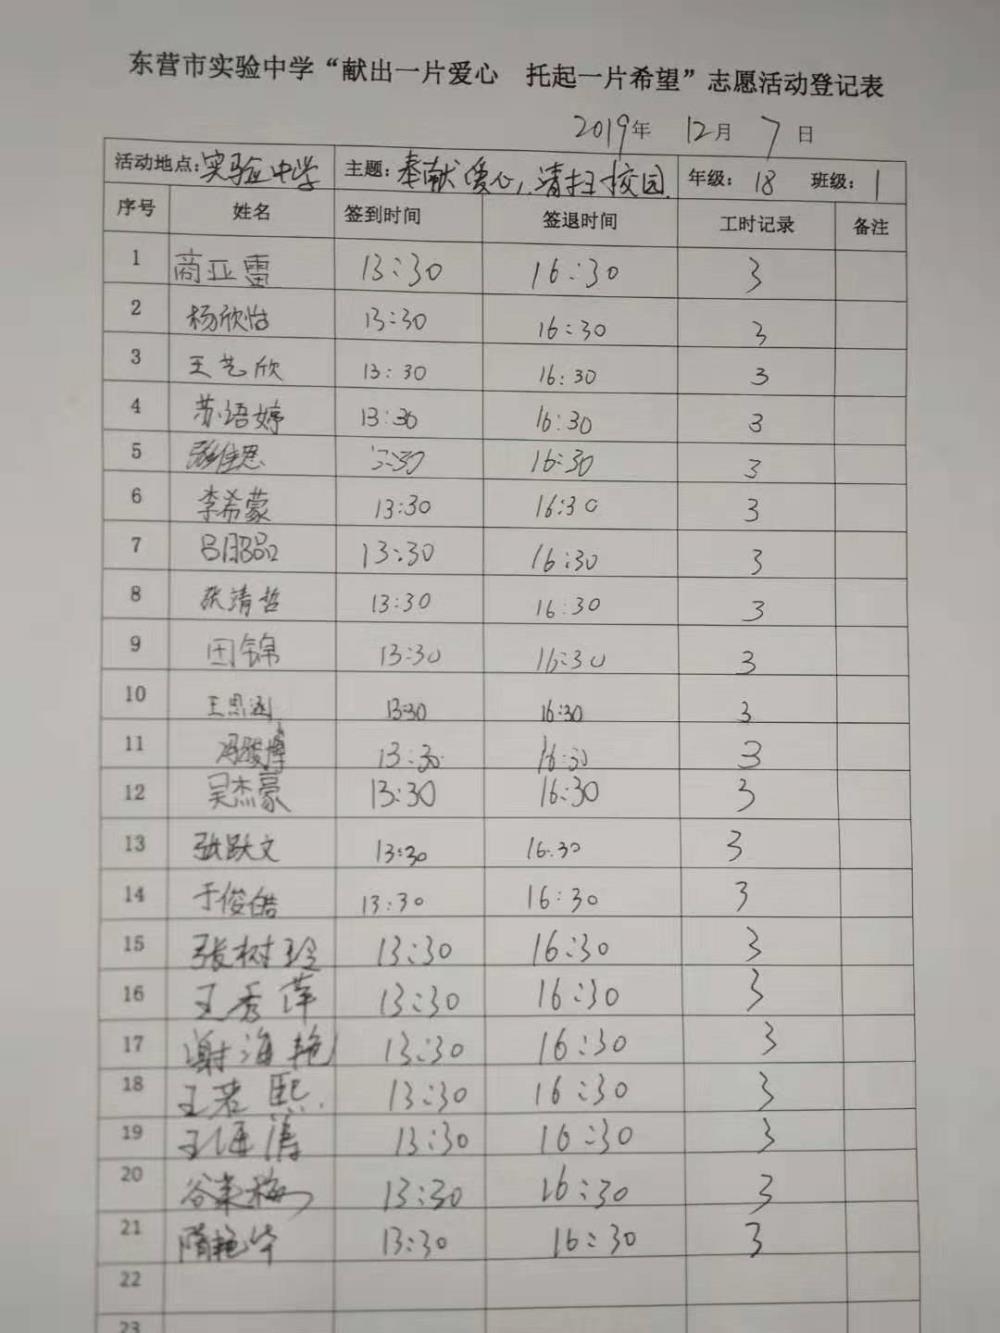 东营市实验中学“献出一片爱心 托起一片希望”志愿活动登记表
2019年 12月 7日
活动地点:实验中学 主题:奉献爱心,清扫校园 年级: 18 班级: 1
序号 姓名 签到时间 签退时间 工时记录 备注
1 商亚雷 13:30 16:30 3
2 杨欣怡 13:30 16:30 3
3 王艺欣 13:30 16:30 3
4 苏语婷 13:30 16:30 3
5 16:30 3
6 李希蒙 13:30 16:30 3
7 13:30 16:30 3
8 张靖哲 13:30 16:30 3
9 田锦 13:30 16:30 3
10 王思涵 13:30 16:30 3
11 冯骏博 13:30 16:30 3
12 吴杰豪 13:30 16:30 3
13 张跃文 13:30 16.30 3
14 于俊皓 13:30 16:30 3
15 张树玲 13:30 16:30 3
16 王秀萍 13:30 16:30 3
17 谢海艳 13:30 16:30 3
18 王若熙 13:30 16:30 3
19 13:30 16:30 3
20 13:30 16:30 3
21 隋艳华 13:30 16:30 3
22
23